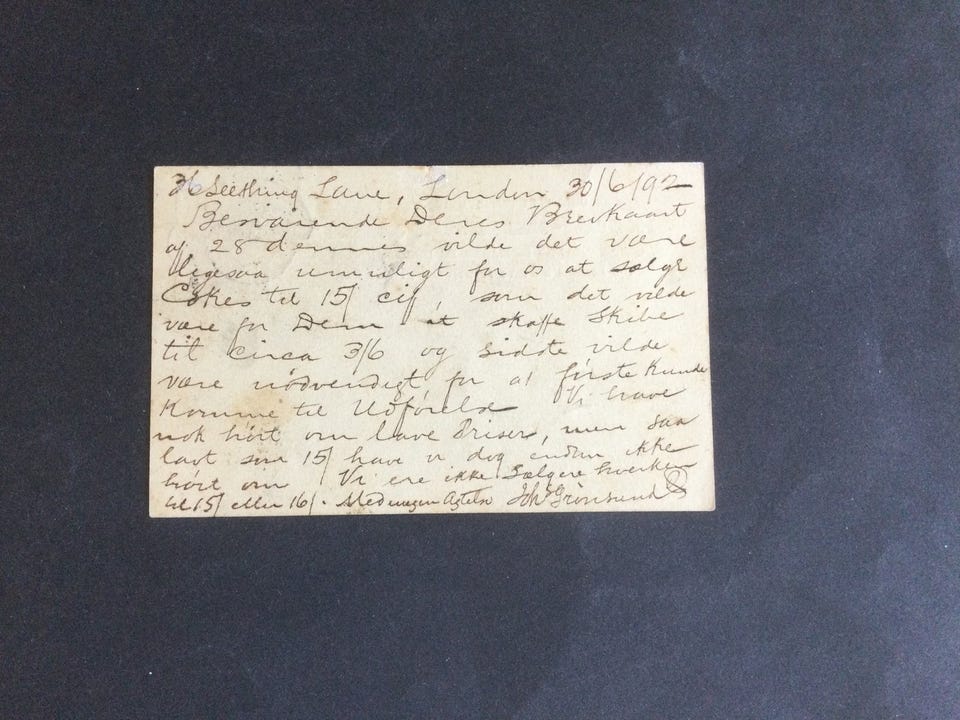 36 Seething Lane, London 30/6/92
Besvarende Deres Brevkaart
af 28 dennes vilde det være
ligesaa umuligt for os at sælge
Cokes til 15/ cif, som det vilde
være for Dem at skaffe Skibe
til circa 3/6 og sidste vilde
være nödvendigt for at förste kunde
komme til Udförelse Vi have
nok hört om lave Priser, men saa
lavt som 15/ have vi dog endnu ikke
hört om Vi ere ikke Sælgere hverken
til 15/ eller 16/. Med megen Agtelse Joh Grönsund